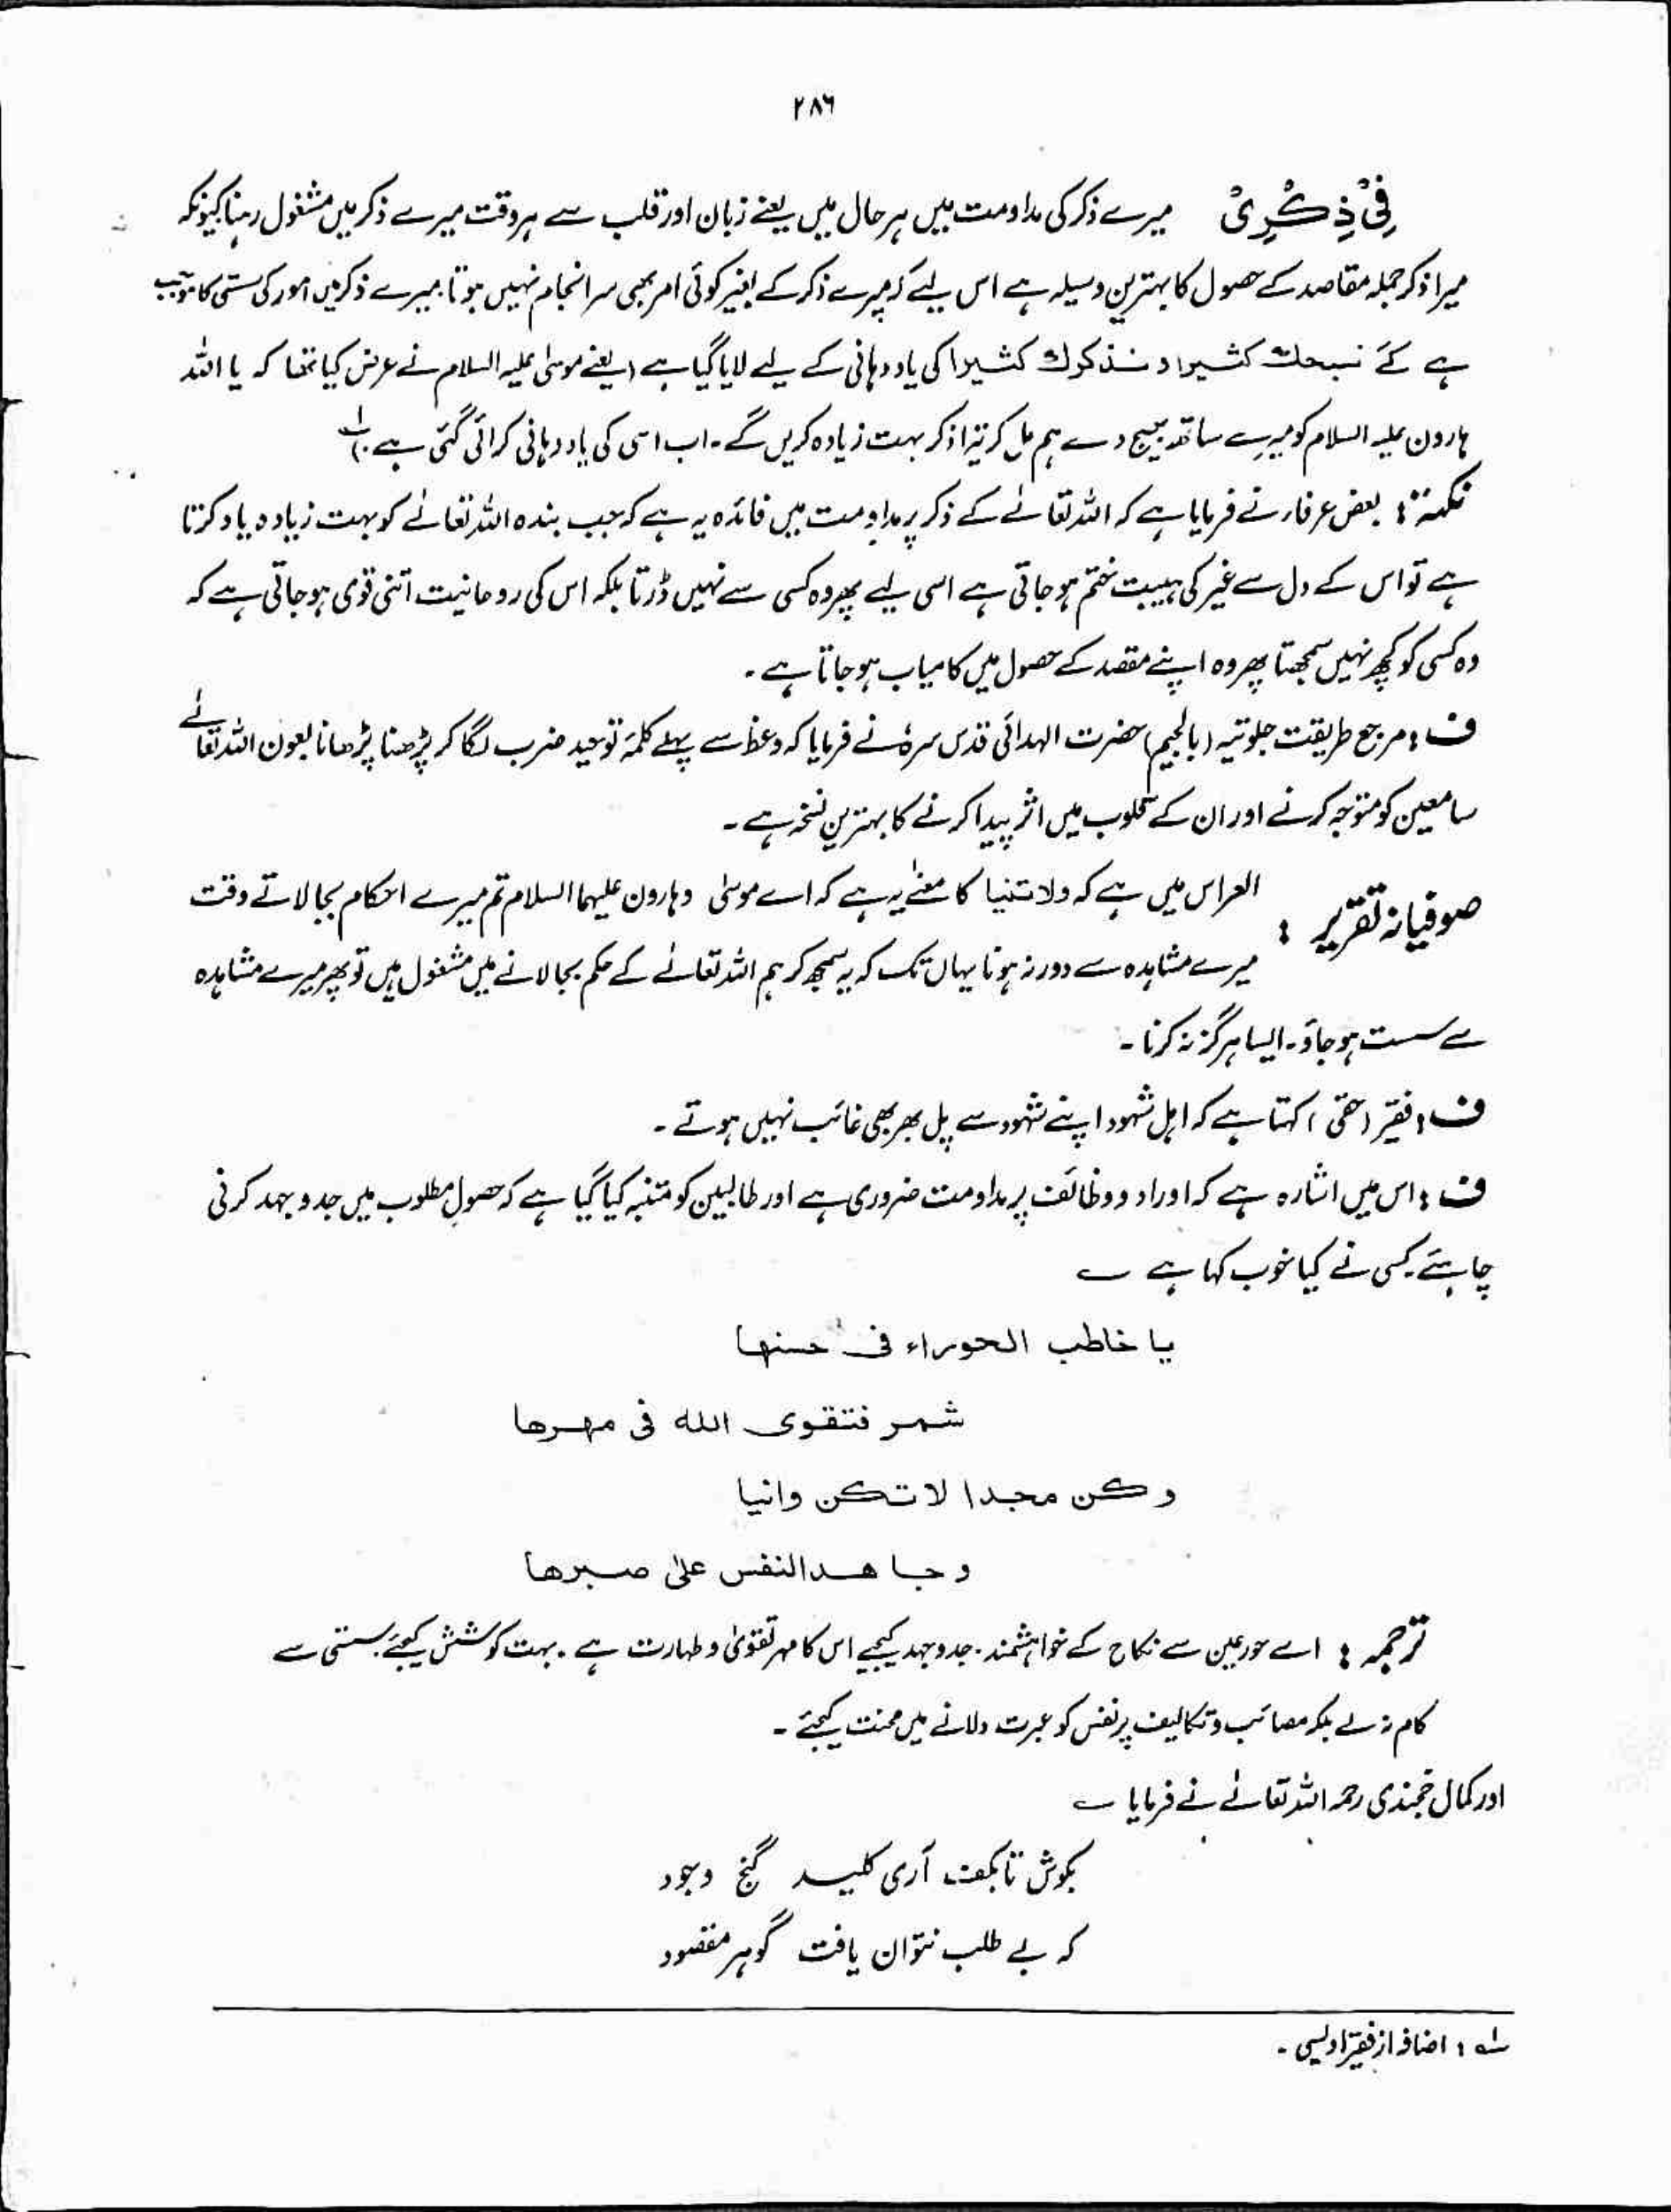 ۲۸۶
فِیْ ذِکْرِیْ میرے ذکر کی مداومت میں ہر حال میں یعنے زبان اور قلب سے ہر وقت میرے ذکر میں مشغول رہنا کیونکہ
میرا ذکر جملہ مقاصد کے حصول کا بہترین وسیلہ ہے اس لیے کہ میرے ذکر کے بغیر کوئی امر بھی سرانجام نہیں ہوتا۔ میرے ذکر میں امور کی سستی کا موجب
ہے کے نسبحك كثيرا و نذكرك كثيرا کی یاد دہانی کے لیے لایا گیا ہے (یعنے موسیٰ علیہ السلام نے عرض کیا تھا کہ یا اللہ
ہارون علیہ السلام کو میرے ساتھ بھیج دے ہم مل کر تیرا ذکر بہت زیادہ کریں گے۔ اب اسی کی یاد دہانی کرائی گئی ہے)۔ لہ
نکتہ : بعض عرفاء نے فرمایا ہے کہ اللہ تعالےٰ کے ذکر پر مداومت میں فائدہ یہ ہے کہ جب بندہ اللہ تعالےٰ کو بہت زیادہ یاد کرتا
ہے تو اس کے دل سے غیر کی ہیبت ختم ہو جاتی ہے اسی لیے پھر وہ کسی سے نہیں ڈرتا بلکہ اس کی روحانیت اتنی قوی ہو جاتی ہے کہ
وہ کسی کو کچھ نہیں سمجھتا پھر وہ اپنے مقصد کے حصول میں کامیاب ہو جاتا ہے۔
ف : مرجع طریقت جلوتیہ (بالجیم) حضرت الہدائی قدس سرہٗ نے فرمایا کہ وعظ سے پہلے کلمۂ توحید ضرب لگا کر پڑھنا پڑھانا بعون اللہ تعالےٰ
سامعین کو متوجہ کرنے اور ان کے قلوب میں اثر پیدا کرنے کا بہترین نسخہ ہے۔
صوفیانہ تقریر : العرائس میں ہے کہ ولا تنیا کا معنےٰ یہ ہے کہ اے موسیٰ و ہارون علیہما السلام تم میرے احکام بجا لاتے وقت
میرے مشاہدہ سے دور نہ ہونا یہاں تک کہ یہ سمجھ کر ہم اللہ تعالےٰ کے حکم بجا لانے میں مشغول ہیں تو پھر میرے مشاہدہ
سے سست ہو جاؤ۔ ایسا ہرگز نہ کرنا۔
ف : فقیر (حقی) کہتا ہے کہ اہل شہود اپنے شہود سے پل بھر بھی غائب نہیں ہوتے۔
ف : اس میں اشارہ ہے کہ اوراد و وظائف پر مداومت ضروری ہے اور طالبین کو متنبہ کیا گیا ہے کہ حصولِ مطلوب میں جدوجہد کرنی
چاہئے۔ کسی نے کیا خوب کہا ہے ؎
يا خاطب الحوراء فى حسنها
شمر فتقوى الله فى مهرها
وكن مجدا لا تكن وانيا
وجاهد النفس على صبرها
ترجمہ : اے حور عین سے نکاح کے خواہشمند۔ جدوجہد کیجیے اس کا مہر تقویٰ و طہارت ہے۔ بہت کوشش کیجئے سستی سے
کام نہ لے بلکہ مصائب و تکالیف پر نفس کو عبرت دلانے میں محنت کیجئے۔
اور کمال خجندی رحمہ اللہ تعالےٰ نے فرمایا ؎
بکوش تا بکف آری کلید گنج وجود
کہ بے طلب نتوان یافت گوہر مقصود
لہ : اضافہ از فقیر اویسی۔